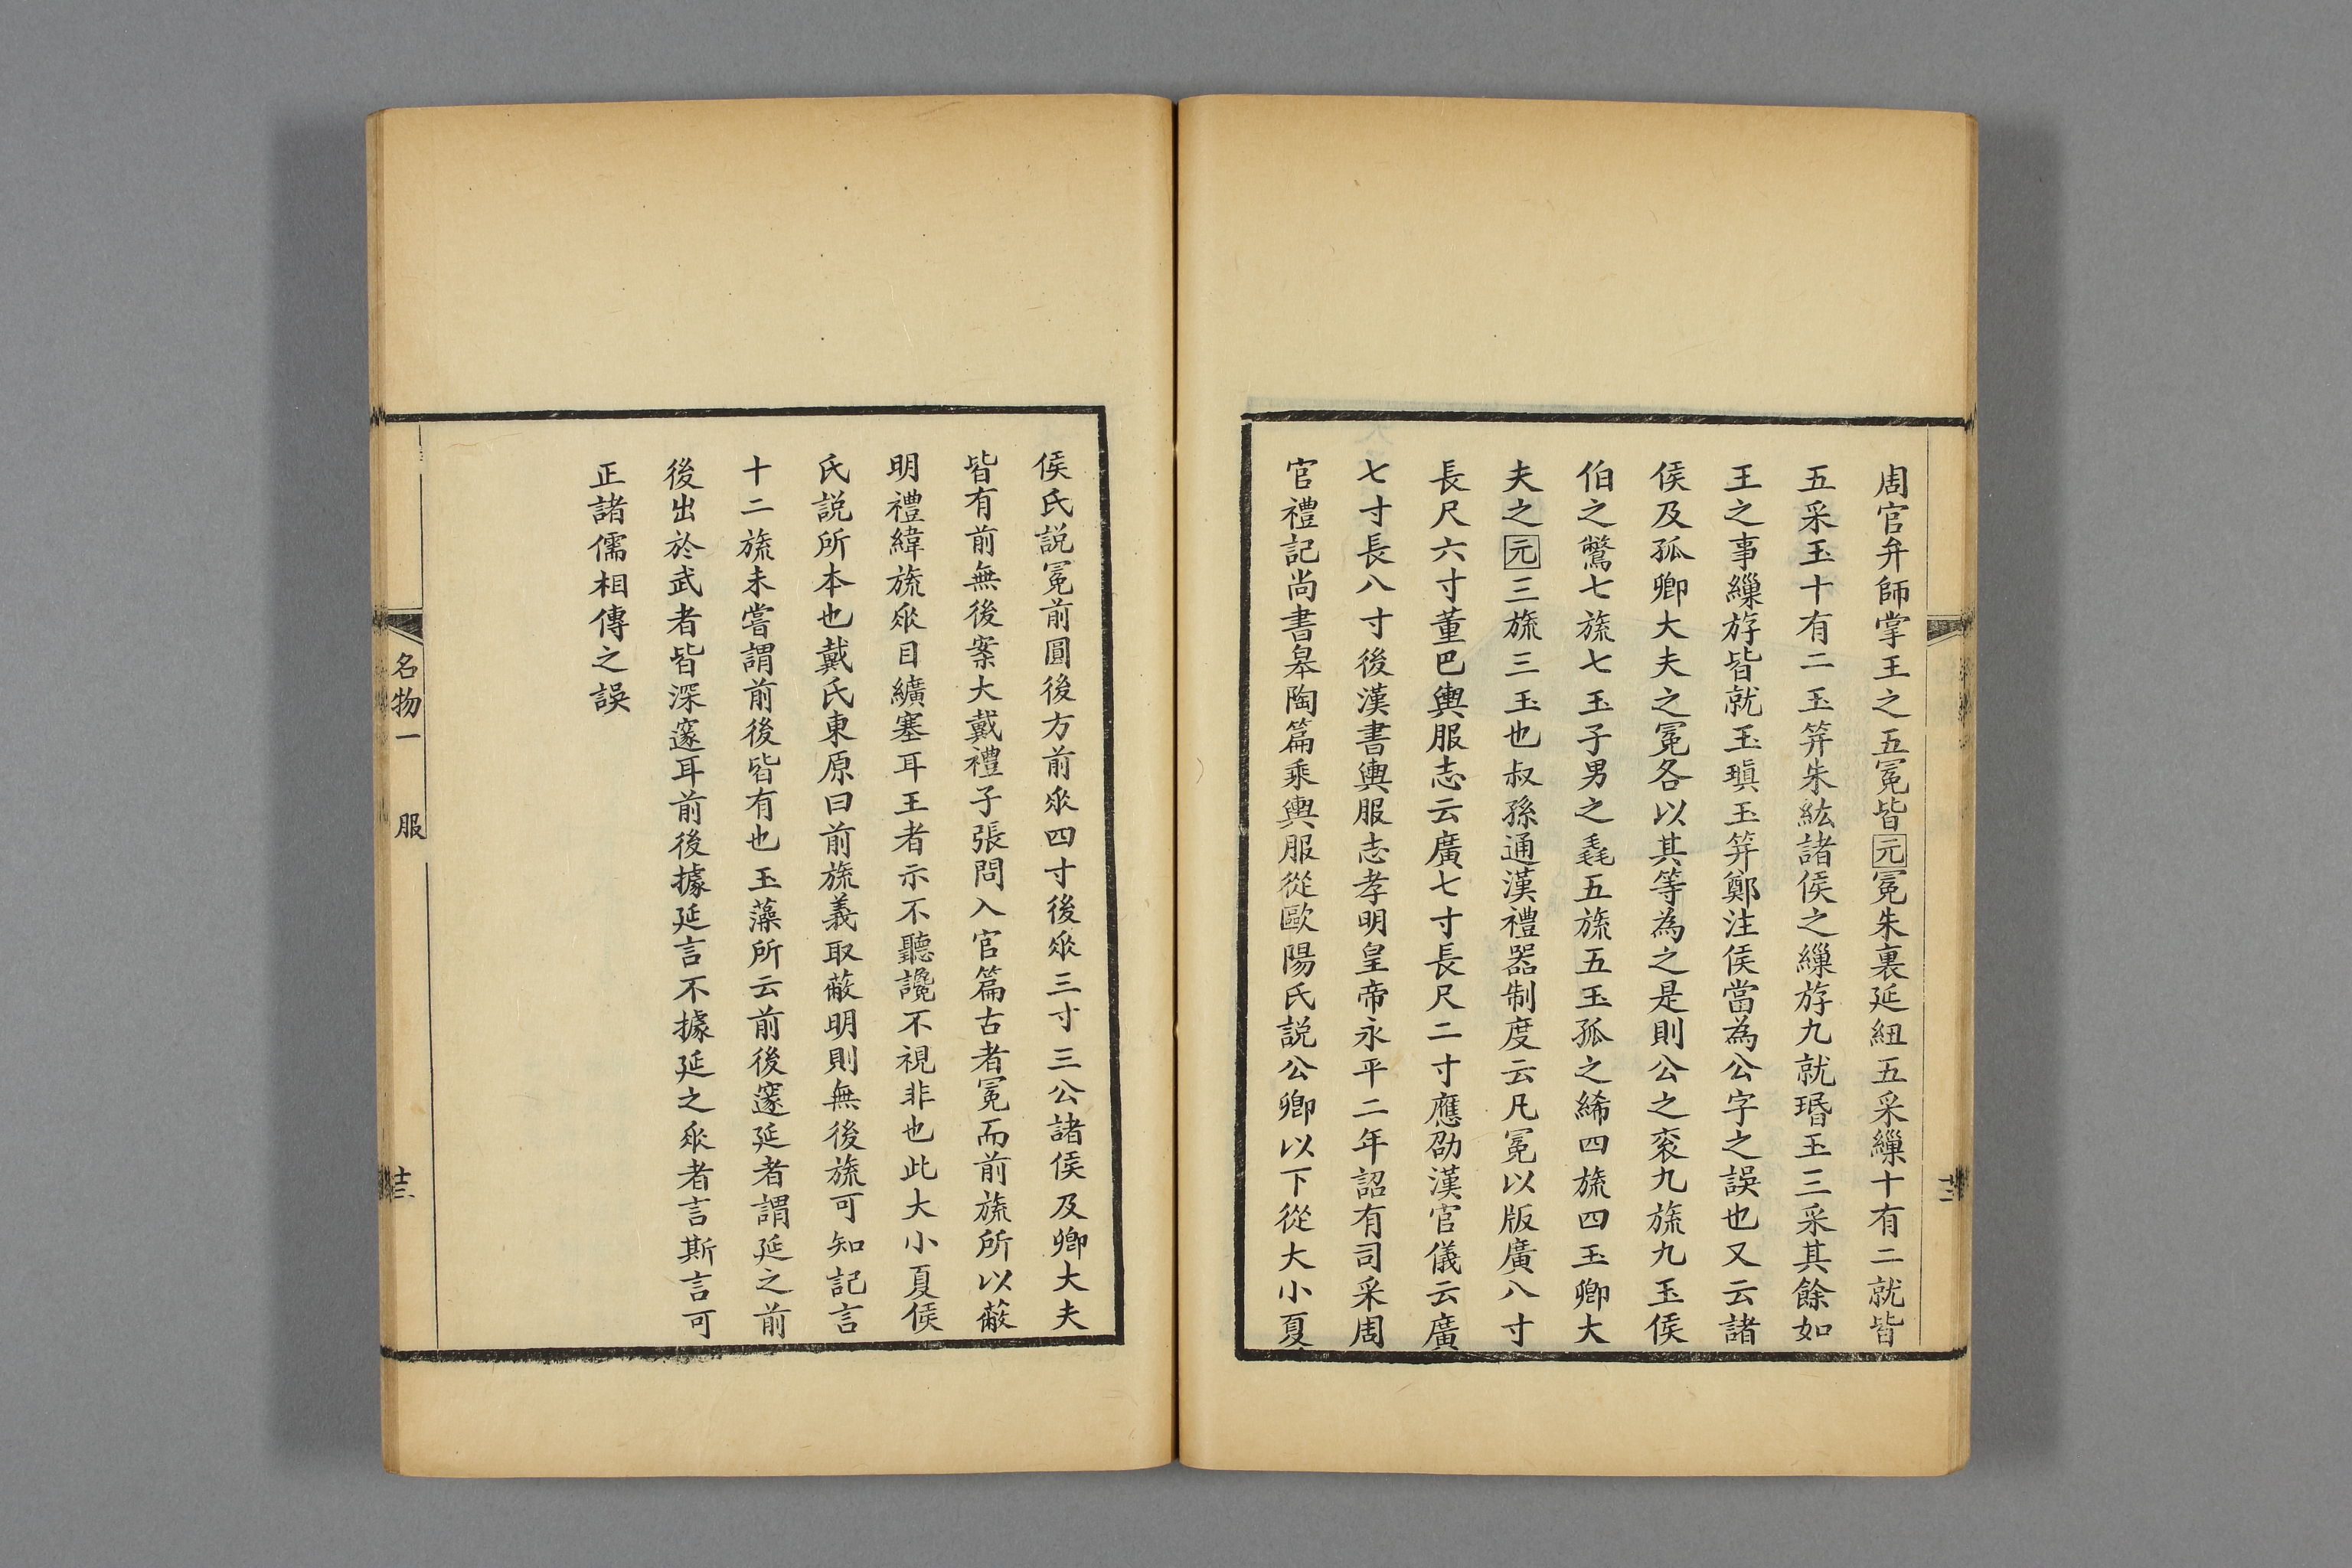 周官弁師掌王之五冕皆元冕朱裏延紐五采繅十有二就皆
五采玉十有二玉筓朱紘諸侯之繅斿九就瑉玉三采其餘如
王之事繅斿皆就玉瑱玉筓鄭注侯當為公字之誤也又云諸
侯及孤卿大夫之冕各以其等為之是則公之袞九旒九玉侯
伯之鷩七旒七玉子男之毳五旒五玉孤之絺四旒四玉卿大
夫之元三旒三玉也叔孫通漢禮器制度云凡冕以版廣八寸
長尺六寸董巴輿服志云廣七寸長尺二寸應劭漢官儀云廣
七寸長八寸後漢書輿服志孝明皇帝永平二年詔有司采周
官禮記尚書皋陶篇乘輿服從歐陽氏說公卿以下從大小夏
十二
侯氏說冕前圓後方前𠂹四寸後𠂹三寸三公諸侯及卿大夫
皆有前無後案大戴禮子張問入官篇古者冕而前旒所以蔽
明禮緯旒𠂹目纊塞耳王者示不聽讒不視非也此大小夏侯
氏說所本也戴氏東原曰前旒義取蔽明則無後旒可知記言
十二旒未嘗謂前後皆有也玉藻所云前後邃延者謂延之前
後出於武者皆深邃耳前後據延言不據延之𠂹者言斯言可
正諸儒相傳之誤
名物一 服
十三